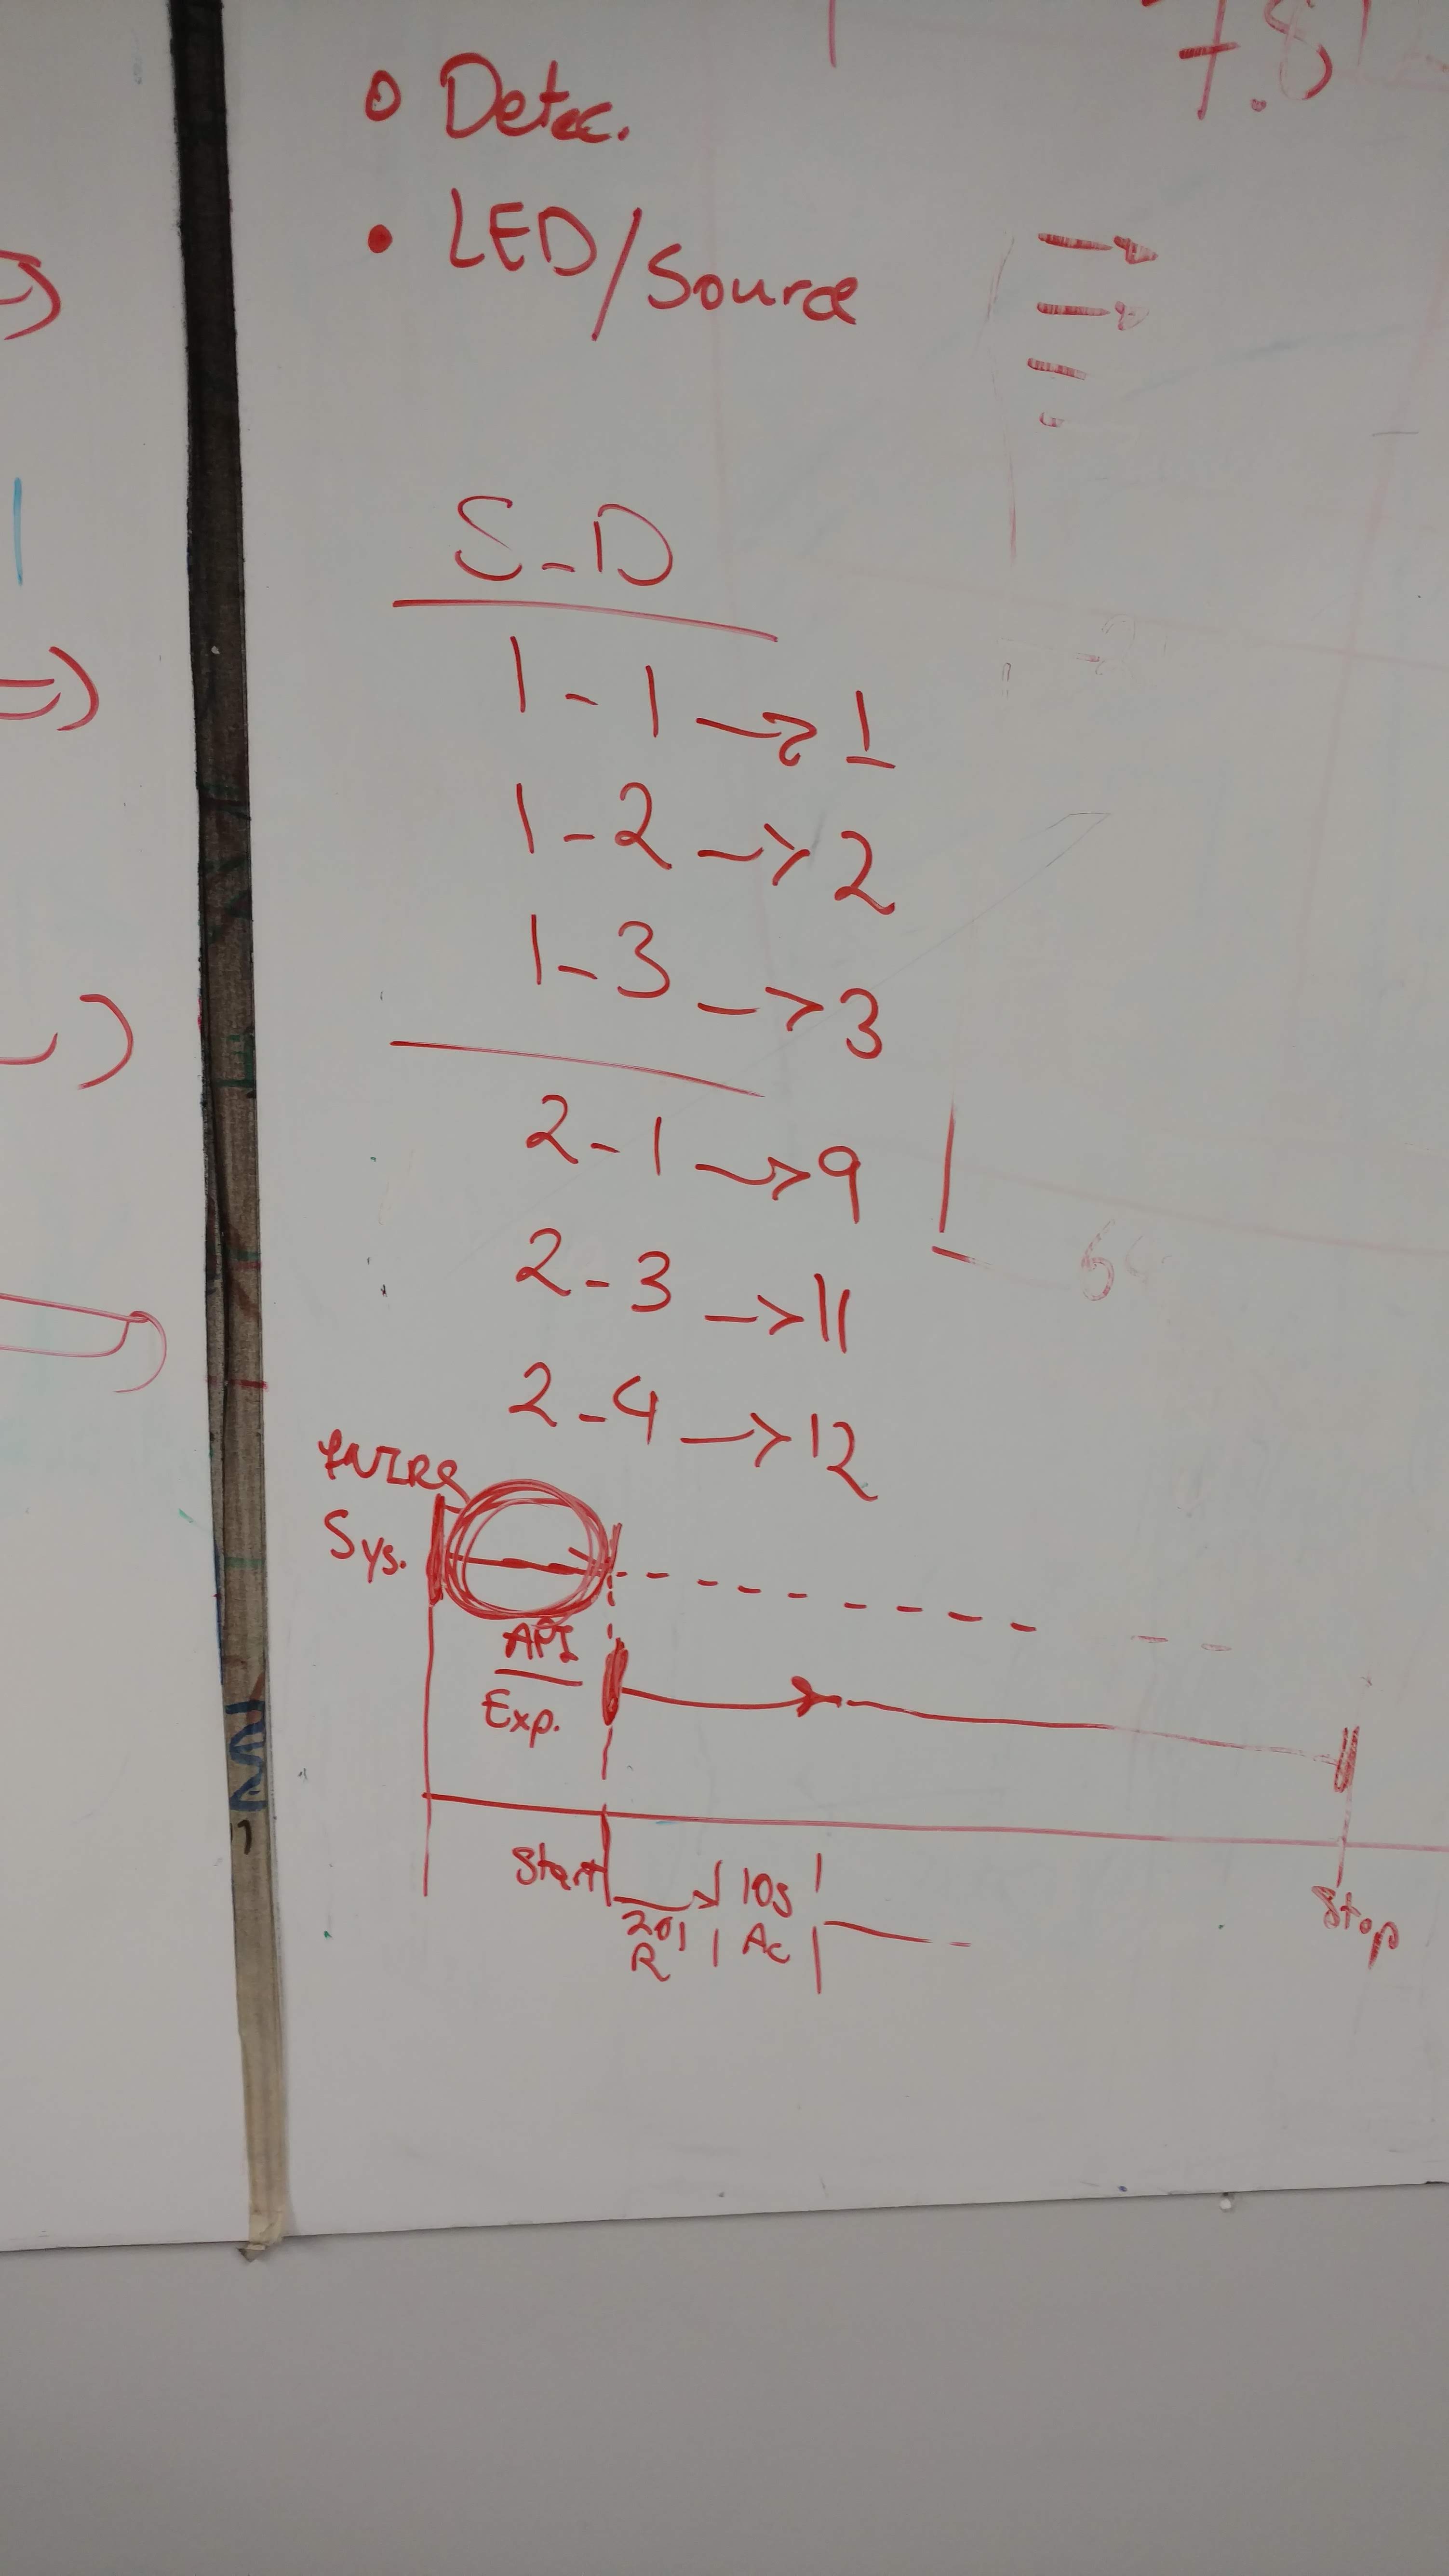 7.8
Detec.
LED/Source
S-D
1-1 → 1
1-2 → 2
1-3 → 3
2-1 → 9
2-3 → 11
2-4 → 12
fNIRS
Sys.
API
Exp.
Start
10s
20
R
Ac
Stop